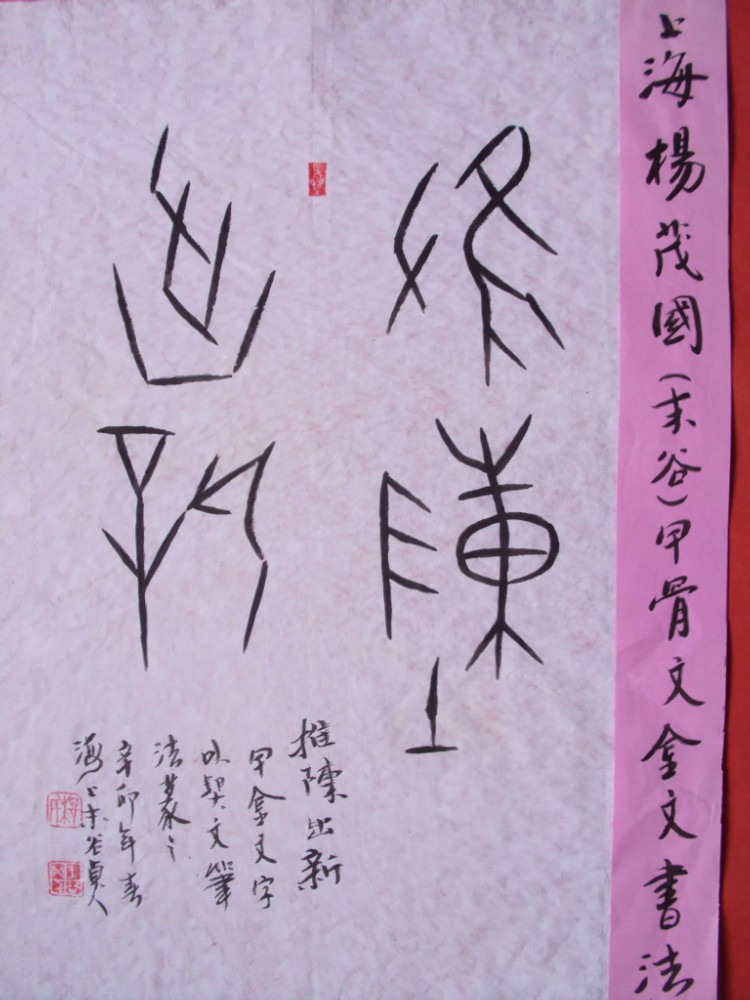 上海楊茂國(耒谷)甲骨文金文書法
推陳
出新
推陳出新
甲金文字
以契文筆
法篆之
辛卯年春
海上耒谷貞人